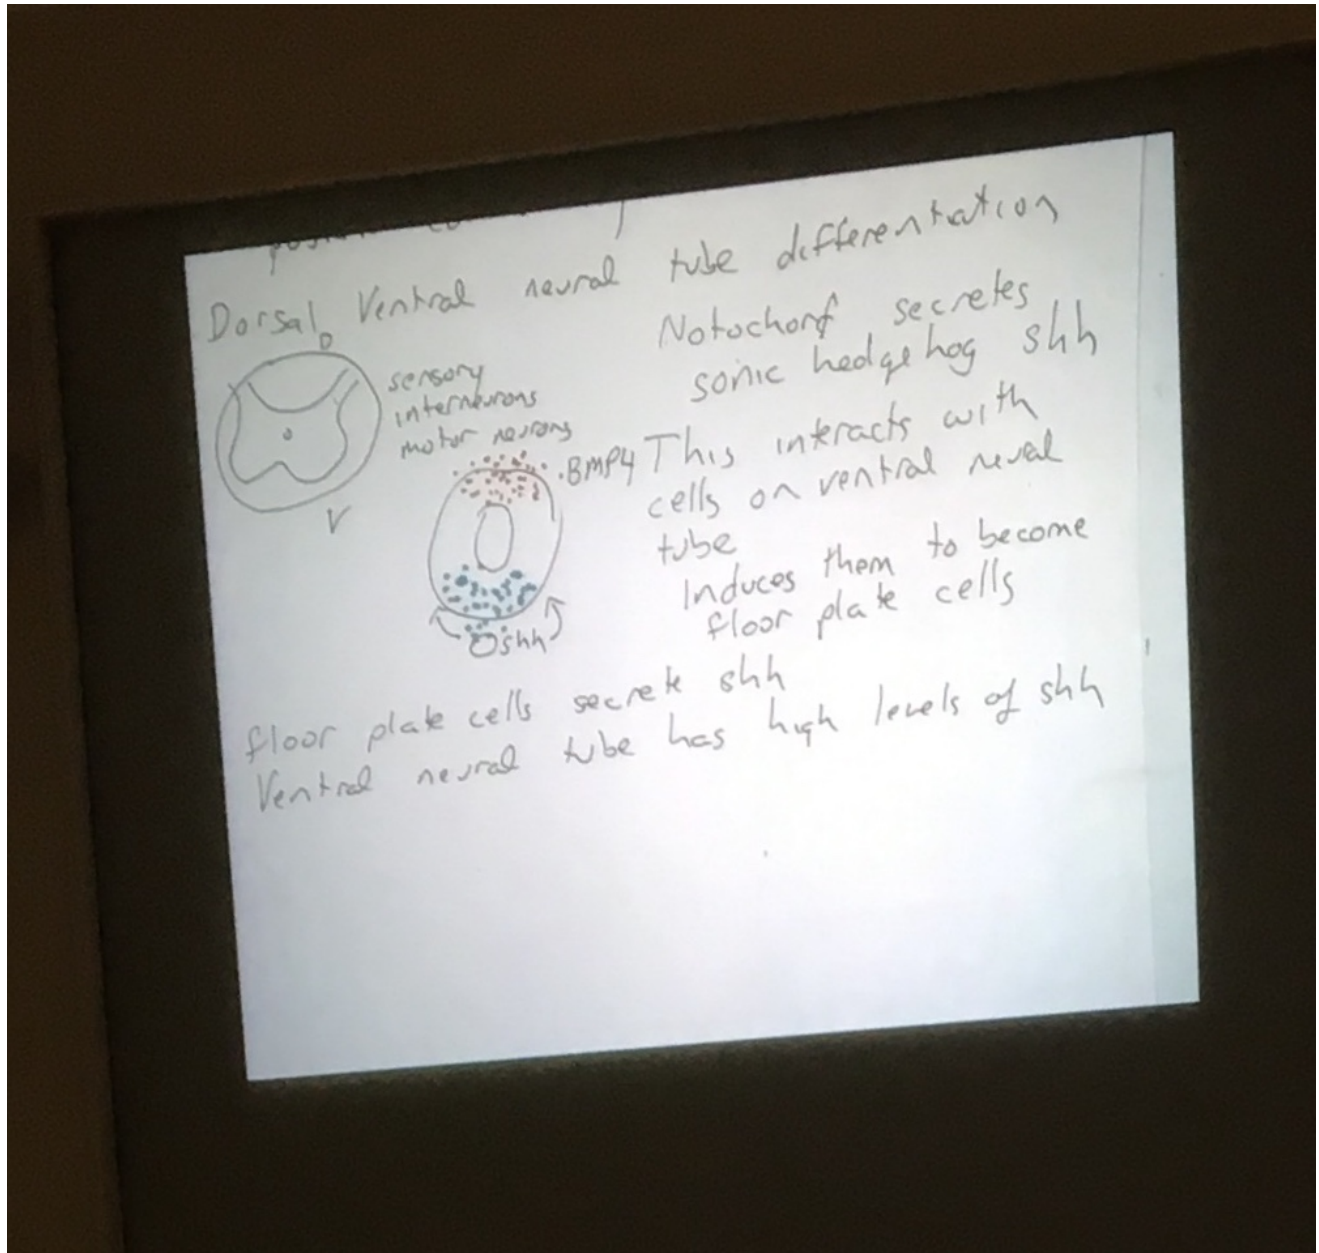 Dorsal Ventral neural tube differentiation
D
sensory
interneurons
motor neurons
V
Notochord secretes
sonic hedgehog shh
.BMP4
This interacts with
cells on ventral neural
tube
Induces them to become
floor plate cells
shh
floor plate cells secrete shh
Ventral neural tube has high levels of shh